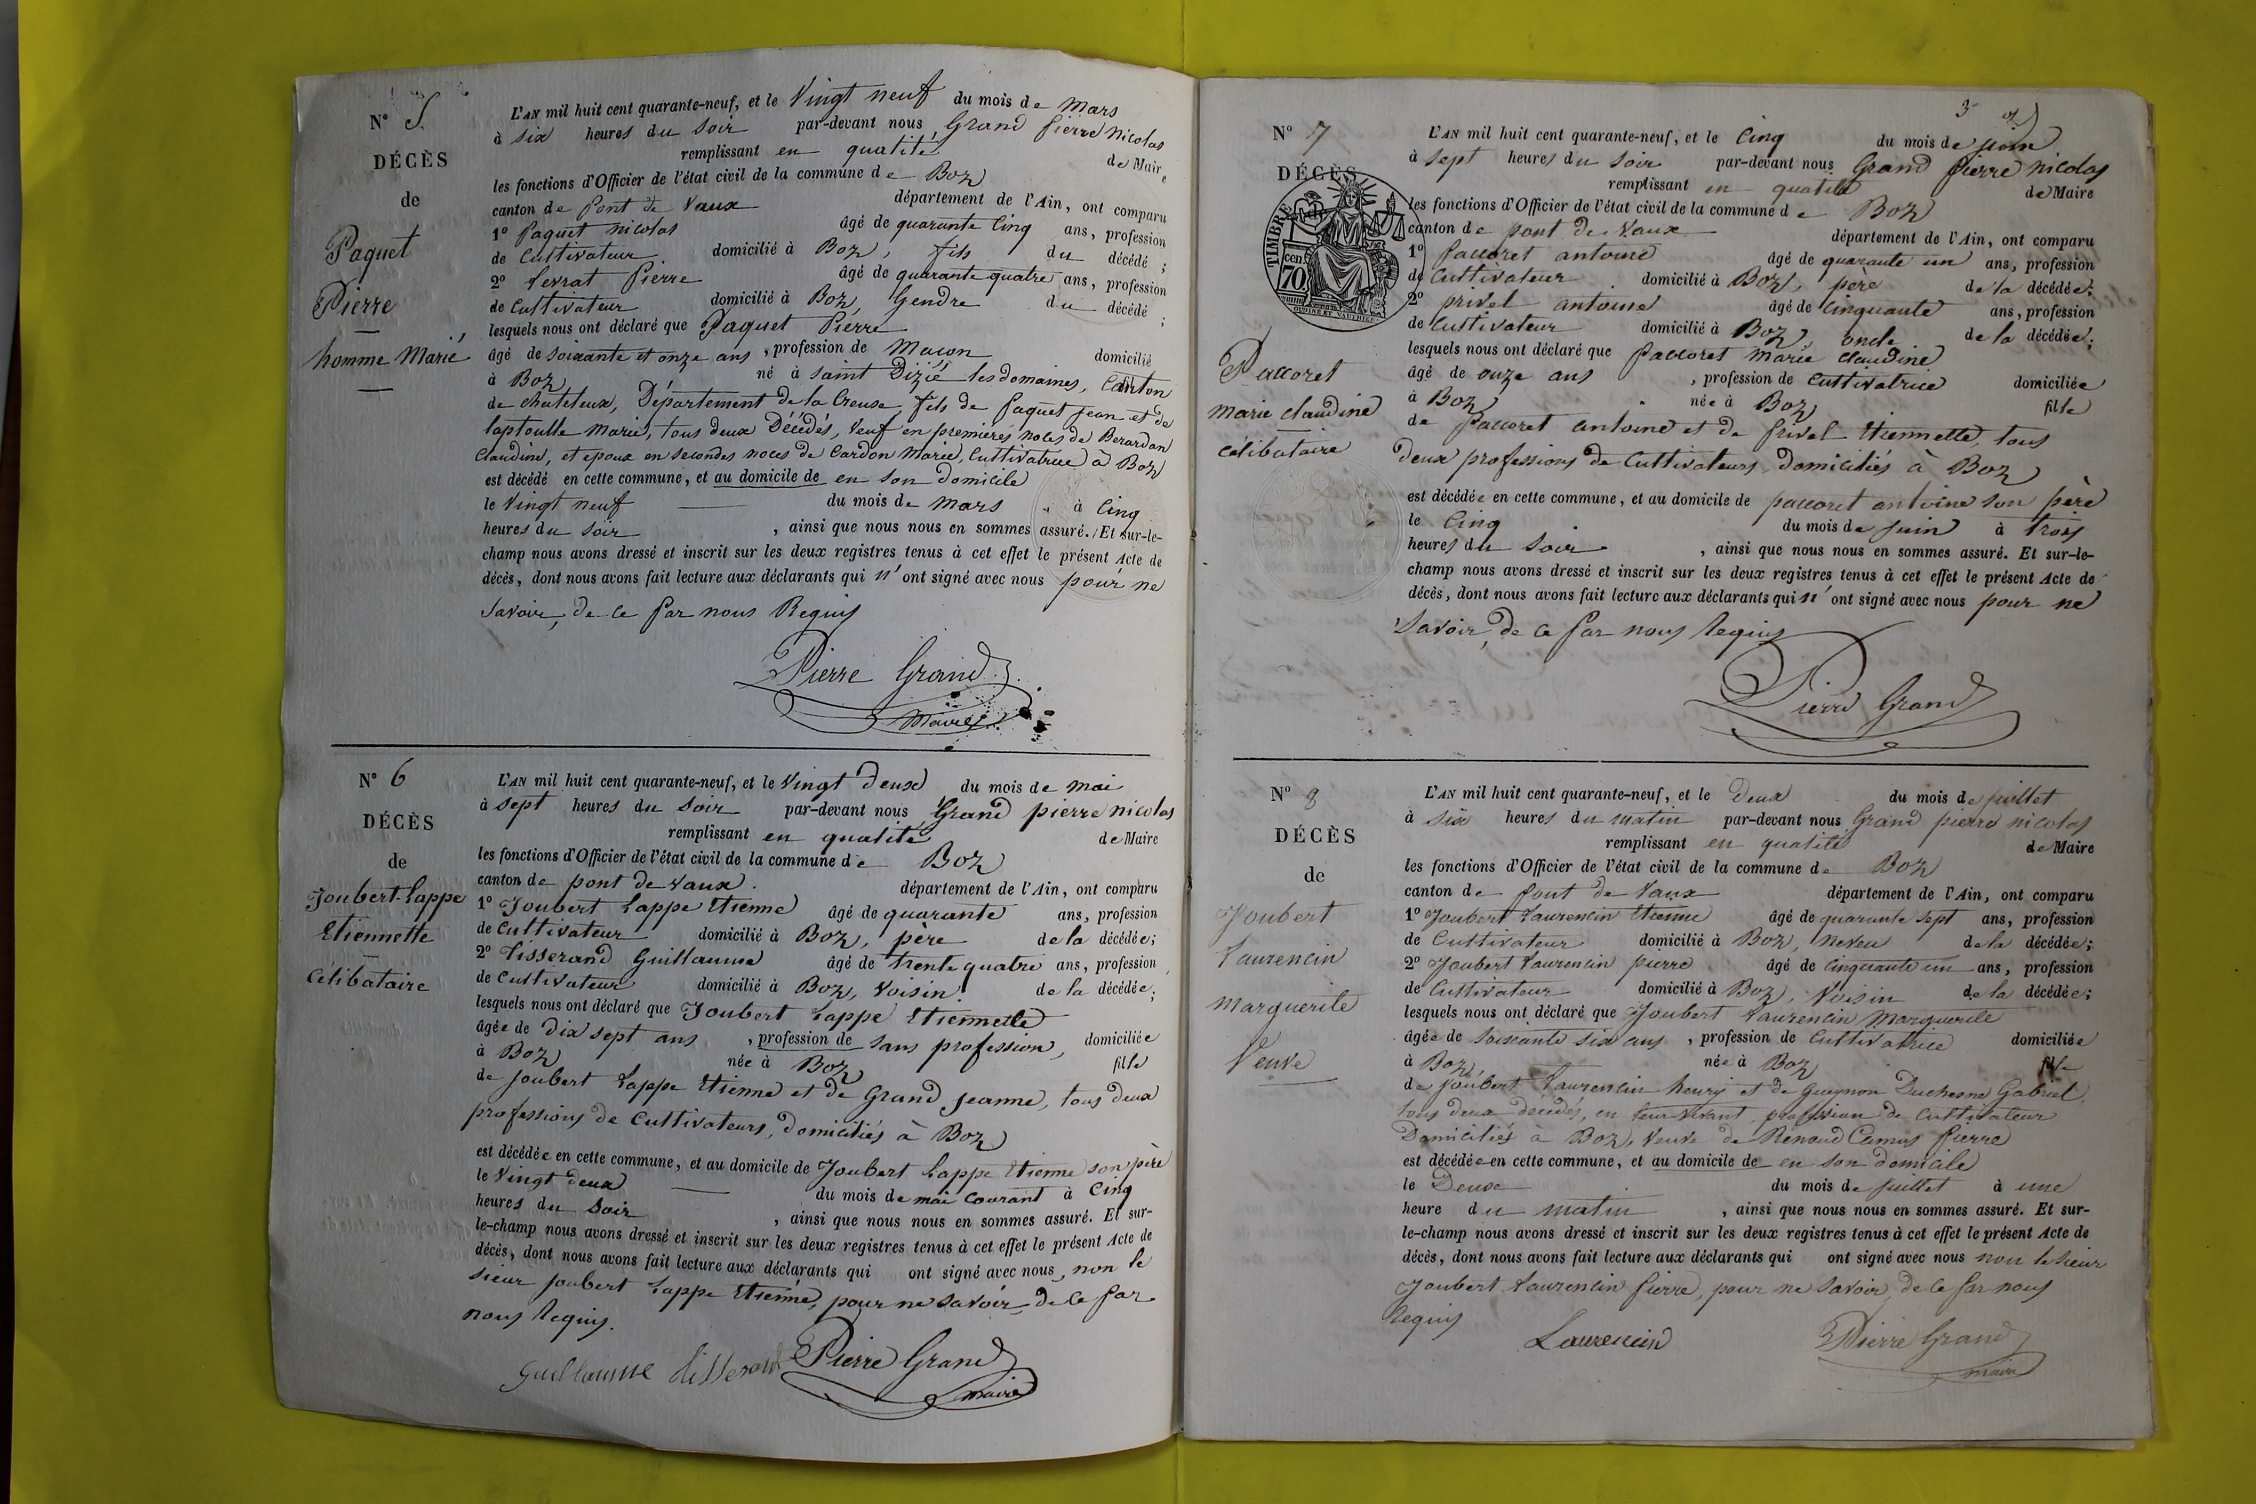 N° 5
DÉCÈS
de
Paquet
Pierre
homme Marié
L'AN mil huit cent quarante-neuf, et le Vingt neuf du mois de Mars
à six heures du soir par-devant nous Grand Pierre Nicolas
remplissant en qualité de Maire
les fonctions d'Officier de l'état civil de la commune de Boz
canton de Pont de Vaux département de l'Ain, ont comparu
1° Paquet nicolas âgé de quarante Cinq ans, profession
de Cultivateur domicilié à Boz, fils du décédé ;
2° Ferrat Pierre âgé de quarante quatre ans, profession
de Cultivateur domicilié à Boz, Gendre du décédé ;
lesquels nous ont déclaré que Paquet Pierre
âgé de soixante et onze ans, profession de Macon domicilié
à Boz né à saint Dizié les domaines, Canton
de chateleux, Département de la Creuse, fils de Paquet Jean et de
Marie, tous deux Décédés, Veuf en premieres noces de Berardan
Claudine, et epoux en secondes noces de Cardon Marie, Cultivatrice à Boz
est décédé en cette commune, et au domicile de en son domicile
le Vingt neuf du mois de Mars à Cinq
heures du soir, ainsi que nous nous en sommes assuré. Et sur-le-
champ nous avons dressé et inscrit sur les deux registres tenus à cet effet le présent Acte de
décès, dont nous avons fait lecture aux déclarants qui n'ont signé avec nous pour ne
savoir, de ce par nous Requis
Pierre Grand
Maire
N° 6
DÉCÈS
de
Joubert-Lappe
Etiennette
Célibataire
L'AN mil huit cent quarante-neuf, et le Vingt deux du mois de mai
à sept heures du soir par-devant nous Grand pierre nicolas
remplissant en qualité de Maire
les fonctions d'Officier de l'état civil de la commune de Boz
canton de pont de vaux. département de l'Ain, ont comparu
1° Joubert Lappe Etienne âgé de quarante ans, profession
de Cultivateur domicilié à Boz, père de la décédée ;
2° Tisserand Guillaume âgé de trente quatre ans, profession
de Cultivateur domicilié à Boz, Voisin. de la décédée ;
lesquels nous ont déclaré que Joubert Lappe Etiennette
âgée de dix sept ans, profession de sans profession, domiciliée
à Boz née à Boz fille
de Joubert Lappe Etienne et de Grand Jeanne, tous deux
professions de Cultivateurs, domiciliés à Boz
est décédée en cette commune, et au domicile de Joubert Lappe Etienne son père
le Vingt deux du mois de mai courant à Cinq
heures du soir, ainsi que nous nous en sommes assuré. Et sur-
le-champ nous avons dressé et inscrit sur les deux registres tenus à cet effet le présent Acte de
décès, dont nous avons fait lecture aux déclarants qui ont signé avec nous, non le
sieur Joubert Lappe Etienne, pour ne savoir, de ce par
nous Requis.
Guillaume tisserand Pierre Grand
maire
3
N° 7
DÉCÈS
TIMBRE
70 cen
Paccoret
marie claudine
célibataire
L'AN mil huit cent quarante-neuf, et le Cinq du mois de juin
à sept heures du soir par-devant nous Grand Pierre Nicolas
remplissant en qualité de Maire
les fonctions d'Officier de l'état civil de la commune de Boz
canton de pont de Vaux département de l'Ain, ont comparu
1° Paccoret antoine âgé de quarante un ans, profession
de Cultivateur domicilié à Boz, père de la décédée ;
2° privel antoine âgé de Cinquante ans, profession
de Cultivateur domicilié à Boz, oncle de la décédée ;
lesquels nous ont déclaré que Paccoret Marie Claudine
âgé de onze ans, profession de Cultivatrice domiciliée
à Boz née à Boz fille
de Paccoret antoine et de Privel Etiennette, tous
deux professions de Cultivateurs, domiciliés à Boz
est décédée en cette commune, et au domicile de paccoret antoine son père
le Cinq du mois de Juin à trois
heures du soir, ainsi que nous nous en sommes assuré. Et sur-le-
champ nous avons dressé et inscrit sur les deux registres tenus à cet effet le présent Acte de
décès, dont nous avons fait lecture aux déclarants qui n'ont signé avec nous pour ne
savoir, de ce par nous Requis
Pierre Grand
N° 8
DÉCÈS
de
Joubert
Laurencin
marguerite
Veuve
L'AN mil huit cent quarante-neuf, et le Deux du mois de juillet
à six heures du matin par-devant nous Grand pierre nicolas
remplissant en qualité de Maire
les fonctions d'Officier de l'état civil de la commune de Boz
canton de Pont de Vaux département de l'Ain, ont comparu
1° Joubert Laurencin Etienne âgé de quarante sept ans, profession
de Cultivateur domicilié à Boz, neveu de la décédée ;
2° Joubert Laurencin pierre âgé de Cinquante un ans, profession
de Cultivateur domicilié à Boz, Voisin de la décédée ;
lesquels nous ont déclaré que Joubert Laurencin Marguerite
âgée de soixante six ans, profession de Cultivatrice domiciliée
à Boz née à Boz fille
de Joubert Laurencin henry et de Guignon Duchesne Gabriel,
tous deux decedés, en leur vivant, profession de Cultivateur
Domiciliés à Boz, Veuve de Renaud Camus Pierre
est décédée en cette commune, et au domicile de en son domicile
le Deux du mois de juillet à une
heure du matin, ainsi que nous nous en sommes assuré. Et sur-
le-champ nous avons dressé et inscrit sur les deux registres tenus à cet effet le présent Acte de
décès, dont nous avons fait lecture aux déclarants qui ont signé avec nous non le sieur
Joubert Laurencin Pierre, pour ne savoir, de ce par nous
Requis
Laurencin Pierre Grand
maire